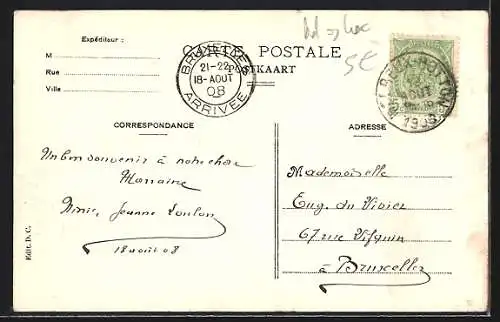 Expéditeur :
M
Rue
Ville
CARTE POSTALE
POSTKAART
BRUXELLES
21-22
18-AOUT
08
ARRIVEE
5€
1908
CORRESPONDANCE
ADRESSE
Un bon souvenir à notre chère
Marraine
Ninie, Jeanne Loulou
18 août 08
Mademoiselle
Eug. du Vivier
67 rue Vifquin
à Bruxelles
Edit. D. C.